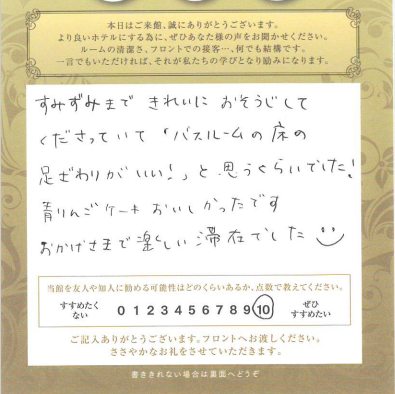 本日はご来館、誠にありがとうございます。
より良いホテルにする為に、ぜひあなた様の声をお聞かせください。
ルームの清潔さ、フロントでの接客…、何でも結構です。
一言でもいただければ、それが私たちの学びとなり励みになります。
すみずみまで きれいに おそうじして
くださっていて「バスルームの床の
足ざわりがいい!」と 思うくらいでした!
青りんごケーキ おいしかったです
おかげさまで楽しい 滞在でした
当館を友人や知人に勧める可能性はどのくらいあるか、点数で教えてください。
すすめたくない 0 1 2 3 4 5 6 7 8 9 10 ぜひすすめたい
ご記入ありがとうございます。フロントへお渡しください。
ささやかなお礼をさせていただきます。
書ききれない場合は裏面へどうぞ